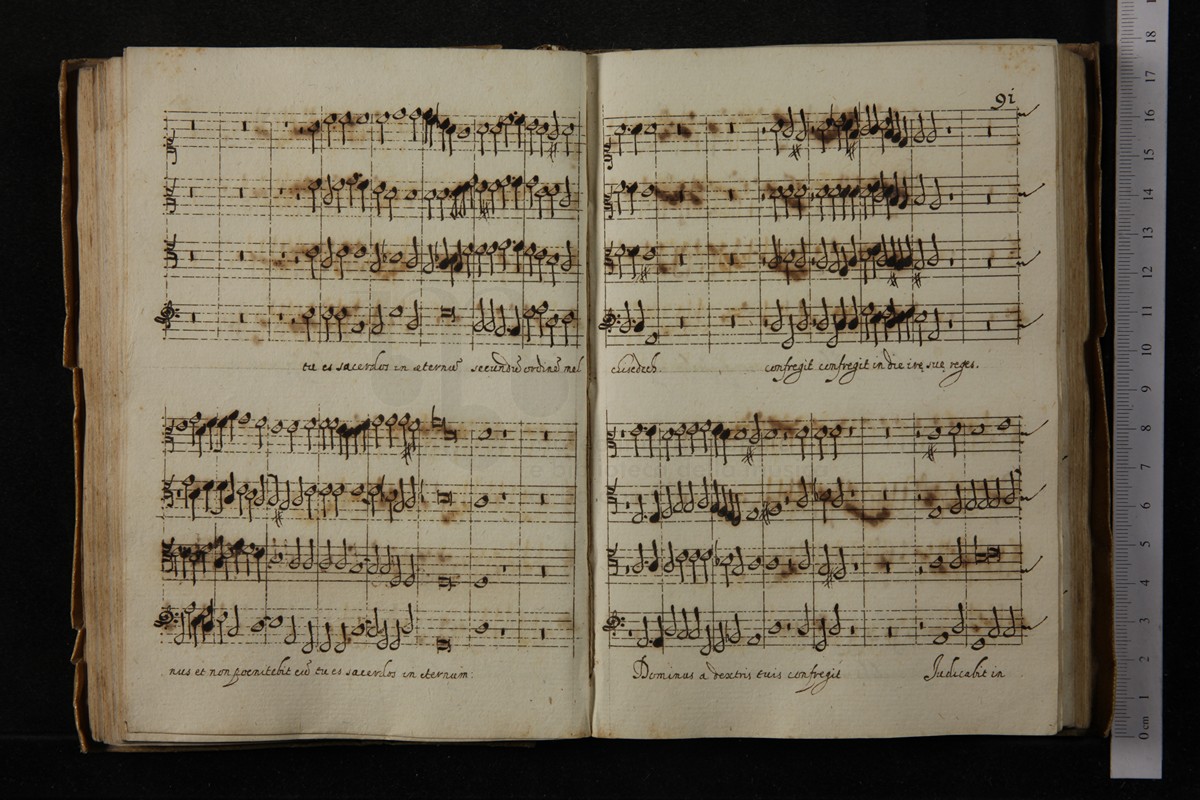 91
tu es sacerdos in æternũ secundũ ordinẽ mel
chisedech. confregit confregit in die irę suę reges.
nus et non poenitebit eũ tu es sacerdos in æternum.
Dominus a dextris tuis confregit Iudicabit in
0 cm 1 2 3 4 5 6 7 8 9 10 11 12 13 14 15 16 17 18